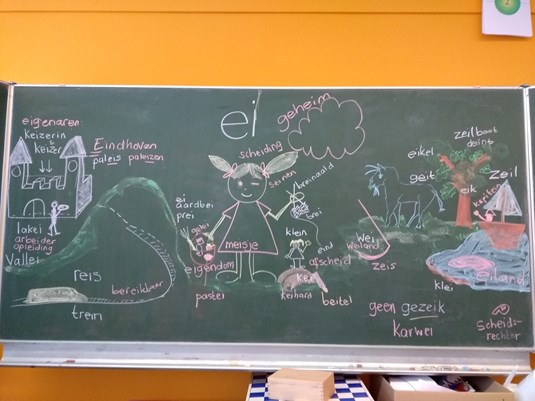 ei
geheim
eigenaren
keizerin
&
keizer
Eindhoven
paleis paleizen
lakei
arbeider
opleiding
Vallei
reis
bereikbaar
trein
scheiding
seinen
breinaald
brei
ei
aardbei
prei
gelei
meisje
eigendom
pastei
klein
eind
afscheid
kei
keihard
beitel
Wei
Weiland
zeis
eikel
geit
eik
zeilboot
deint
zeil
krijsen
eiland
klei
geen gezeik
Karwei
Scheids-
rechter